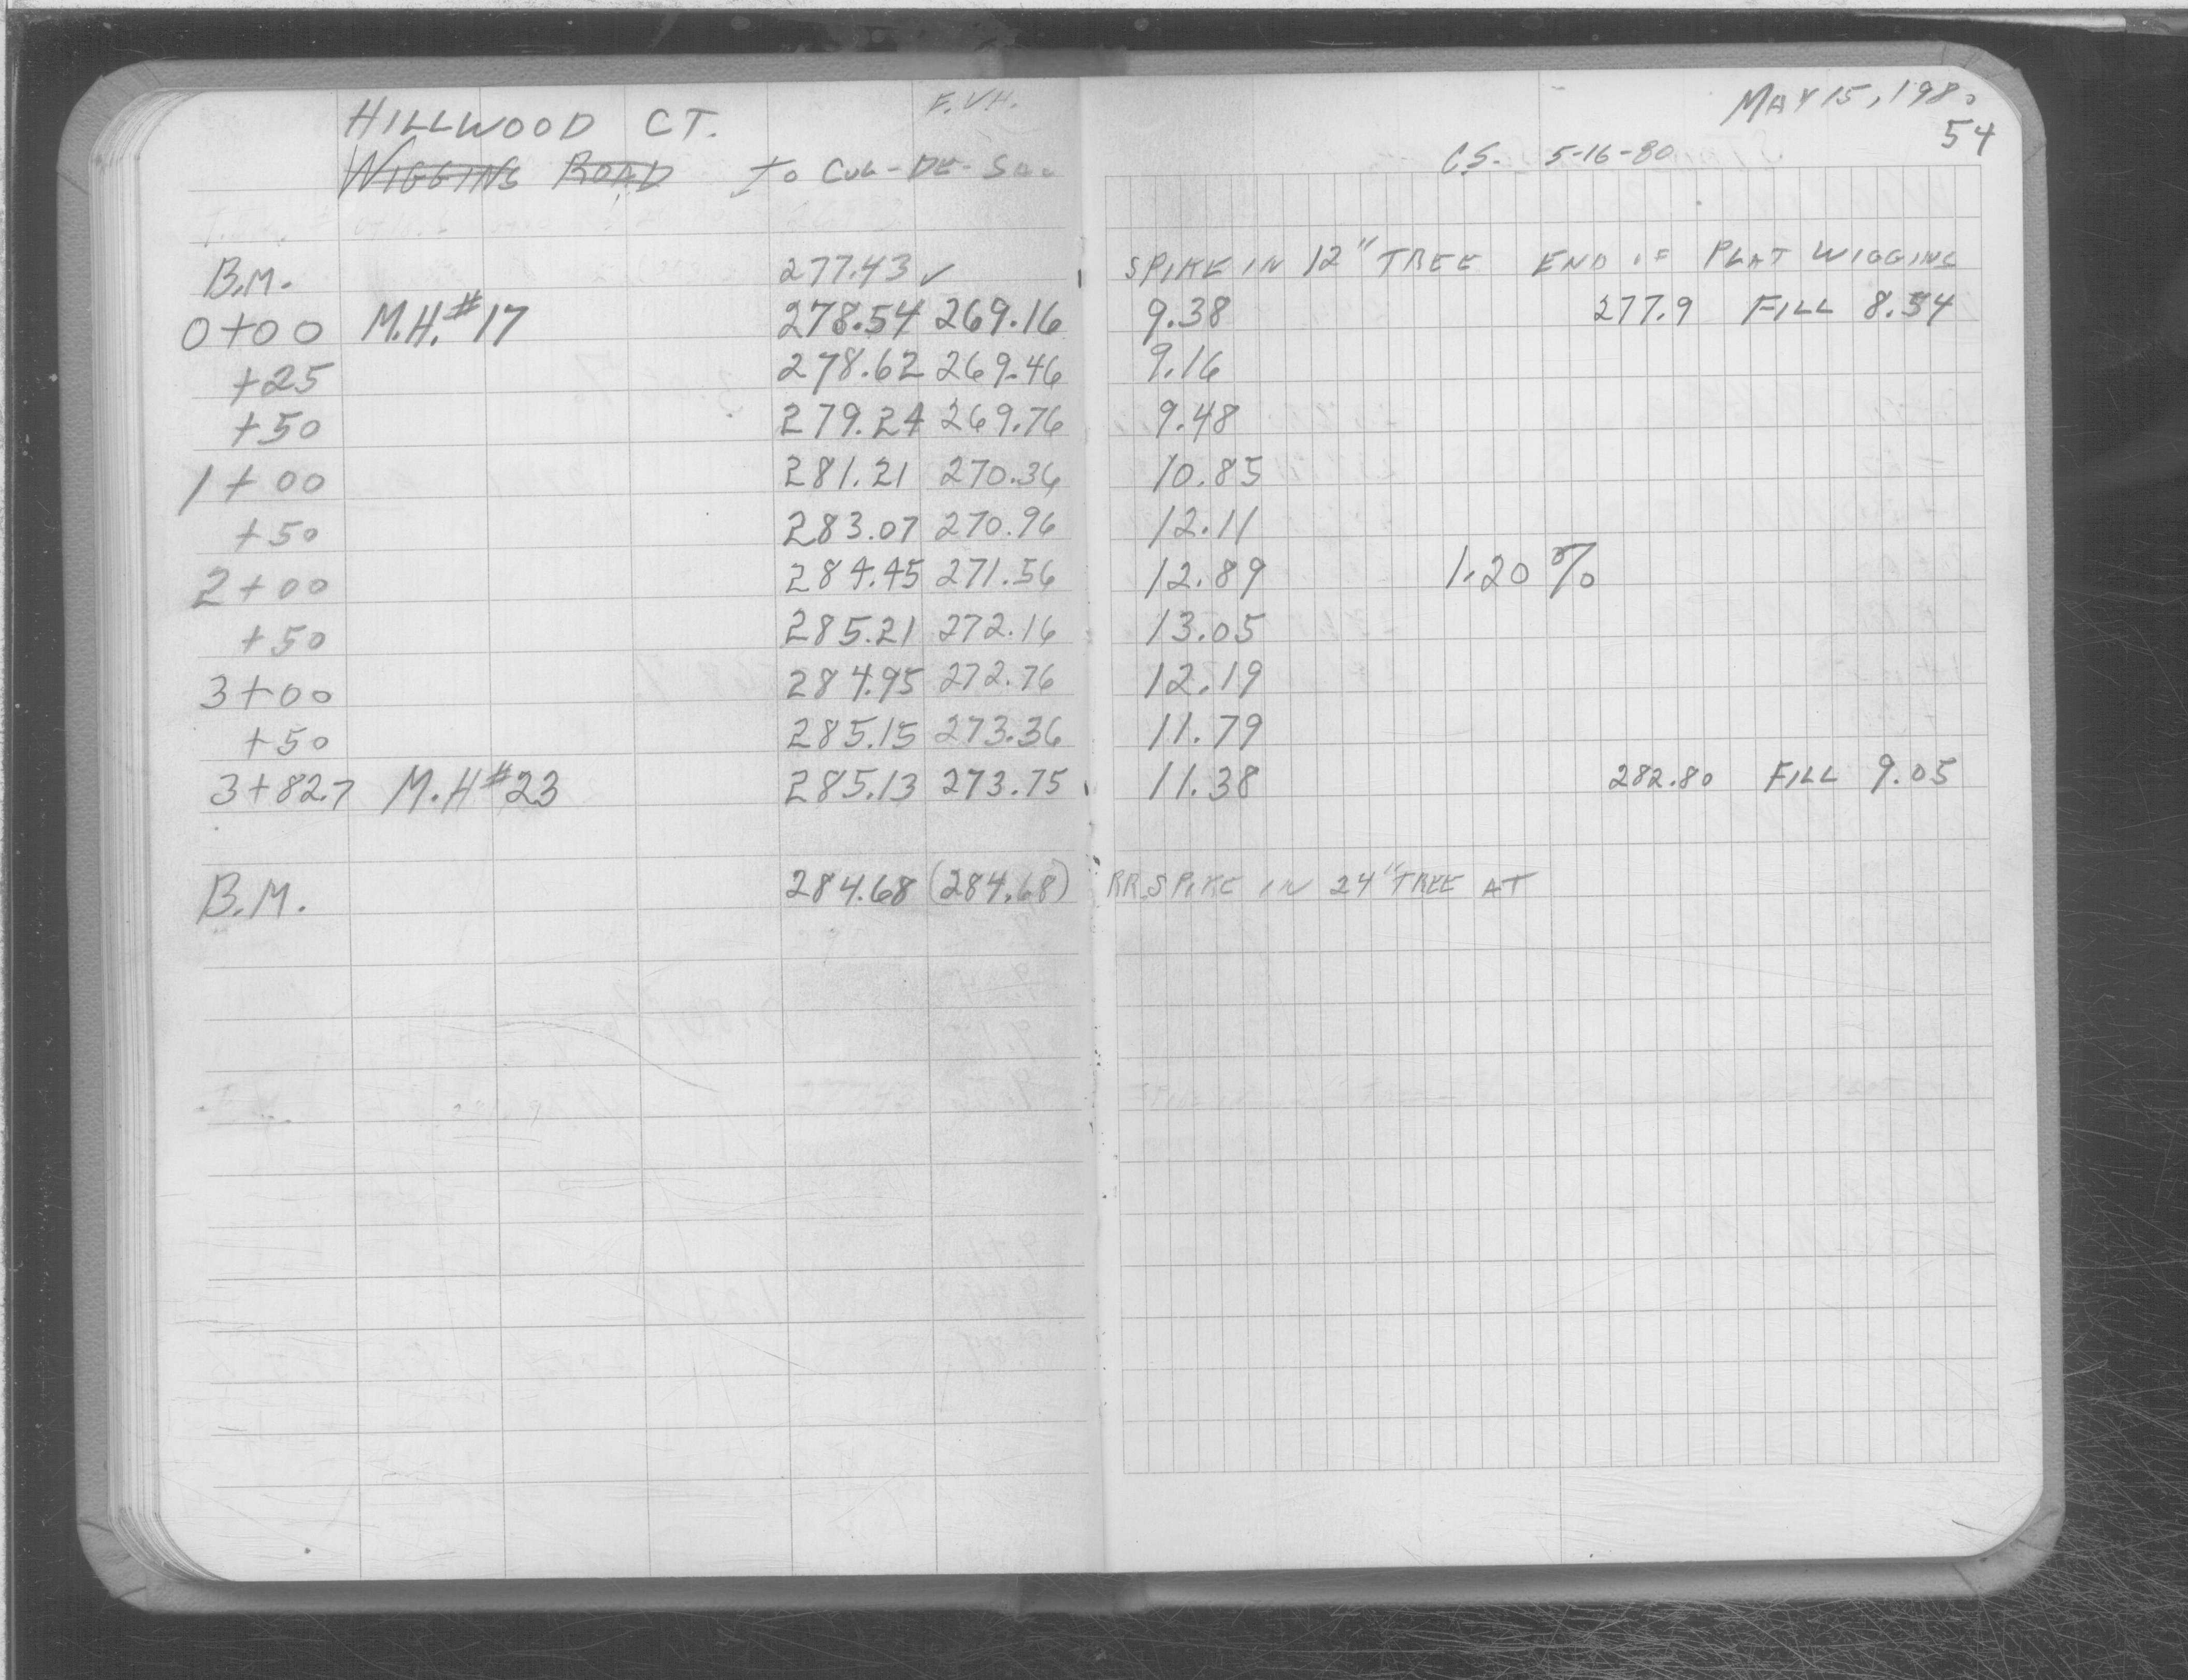 F.V.H.
HILLWOOD CT.
WIGGINS ROAD to CUL-DE-SAC
B.M. 277.43 ✓
0+00 M.H.#17 278.54 269.16
+25 278.62 269.46
+50 279.24 269.76
1+00 281.21 270.36
+50 283.07 270.96
2+00 284.45 271.56
+50 285.21 272.16
3+00 284.95 272.76
+50 285.15 273.36
3+82.7 M.H#23 285.13 273.75
B.M. 284.68 (284.68)
MAY 15, 1980
54
C.S. 5-16-80
SPIKE IN 12" TREE END OF PLAT WIGGINS
9.38 277.9 FILL 8.54
9.16
9.48
10.85
12.11
12.89 1.20%
13.05
12.19
11.79
11.38 282.80 FILL 9.05
RR.SPIKE IN 24" TREE AT